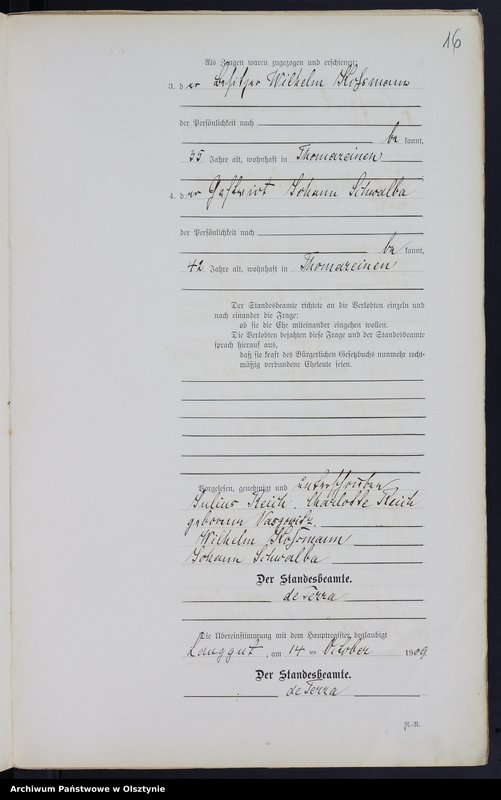 16
Als Zeugen waren zugezogen und erschienen:
3. der Besitzer Wilhelm Koßmann
der Persönlichkeit nach
be kannt,
35 Jahre alt, wohnhaft in Thomareinen
4. der Gastwirt Johann Schwalba
der Persönlichkeit nach
be kannt,
42 Jahre alt, wohnhaft in Thomareinen
Der Standesbeamte richtete an die Verlobten einzeln und
nach einander die Frage:
ob sie die Ehe miteinander eingehen wollen.
Die Verlobten bejahten diese Frage und der Standesbeamte
sprach hierauf aus,
daß sie kraft des Bürgerlichen Gesetzbuchs nunmehr recht-
mäßig verbundene Eheleute seien.
Vorgelesen, genehmigt und unterschrieben
Julius Reich. Charlotte Reich
geborene
Wilhelm Koßmann
Johann Schwalba
Der Standesbeamte.
de Terra
Die Übereinstimmung mit dem Hauptregister beglaubigt
Langgut, am 14 ten October 1909
Der Standesbeamte.
de Terra
Archiwum Państwowe w Olsztynie